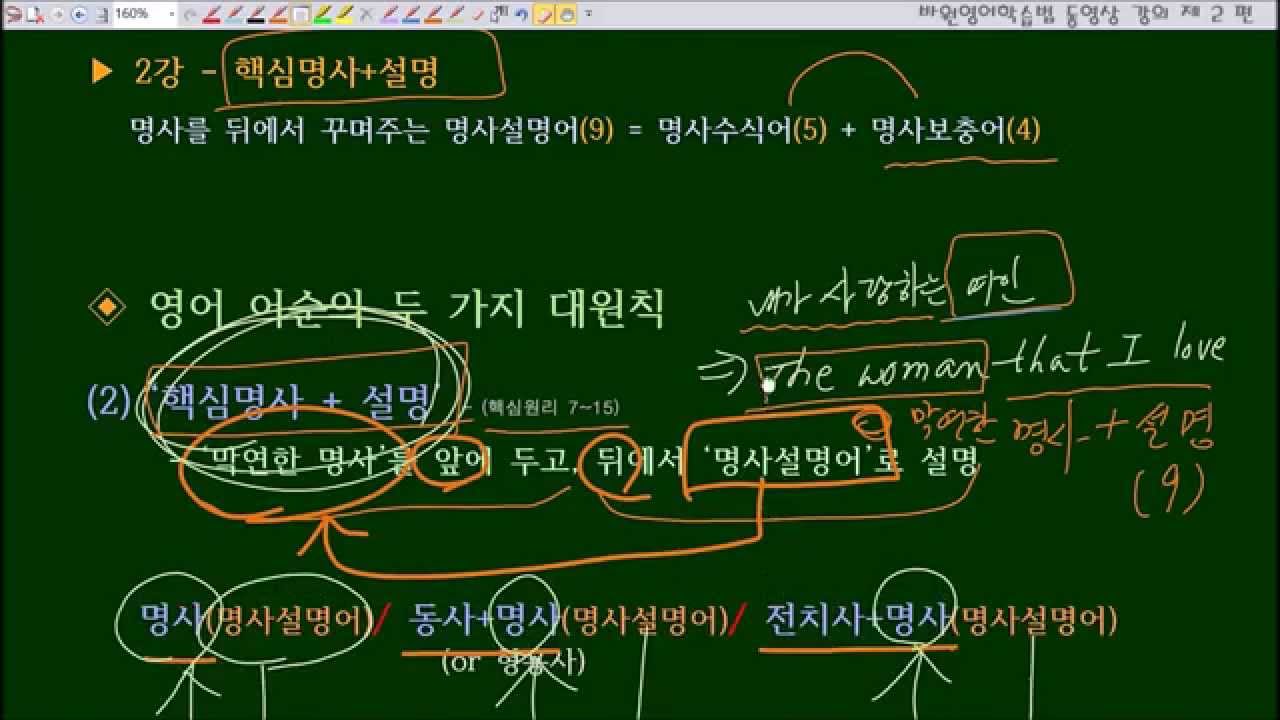 160%
바원영어학습법 동영상 강의 제 2 편
▶ 2강 - 핵심명사+설명
명사를 뒤에서 꾸며주는 명사설명어(9) = 명사수식어(5) + 명사보충어(4)
내가 사랑하는 여인
영어 어순의 두 가지 대원칙
⇒ the woman that I love
(2) '핵심명사 + 설명' - (핵심원리 7~15)
막연한 명사 + 설명
- '막연한 명사'를 앞에 두고, 뒤에서 '명사설명어'로 설명
(9)
명사(명사설명어)/ 동사+명사(명사설명어)/ 전치사+명사(명사설명어)
(or 형용사)